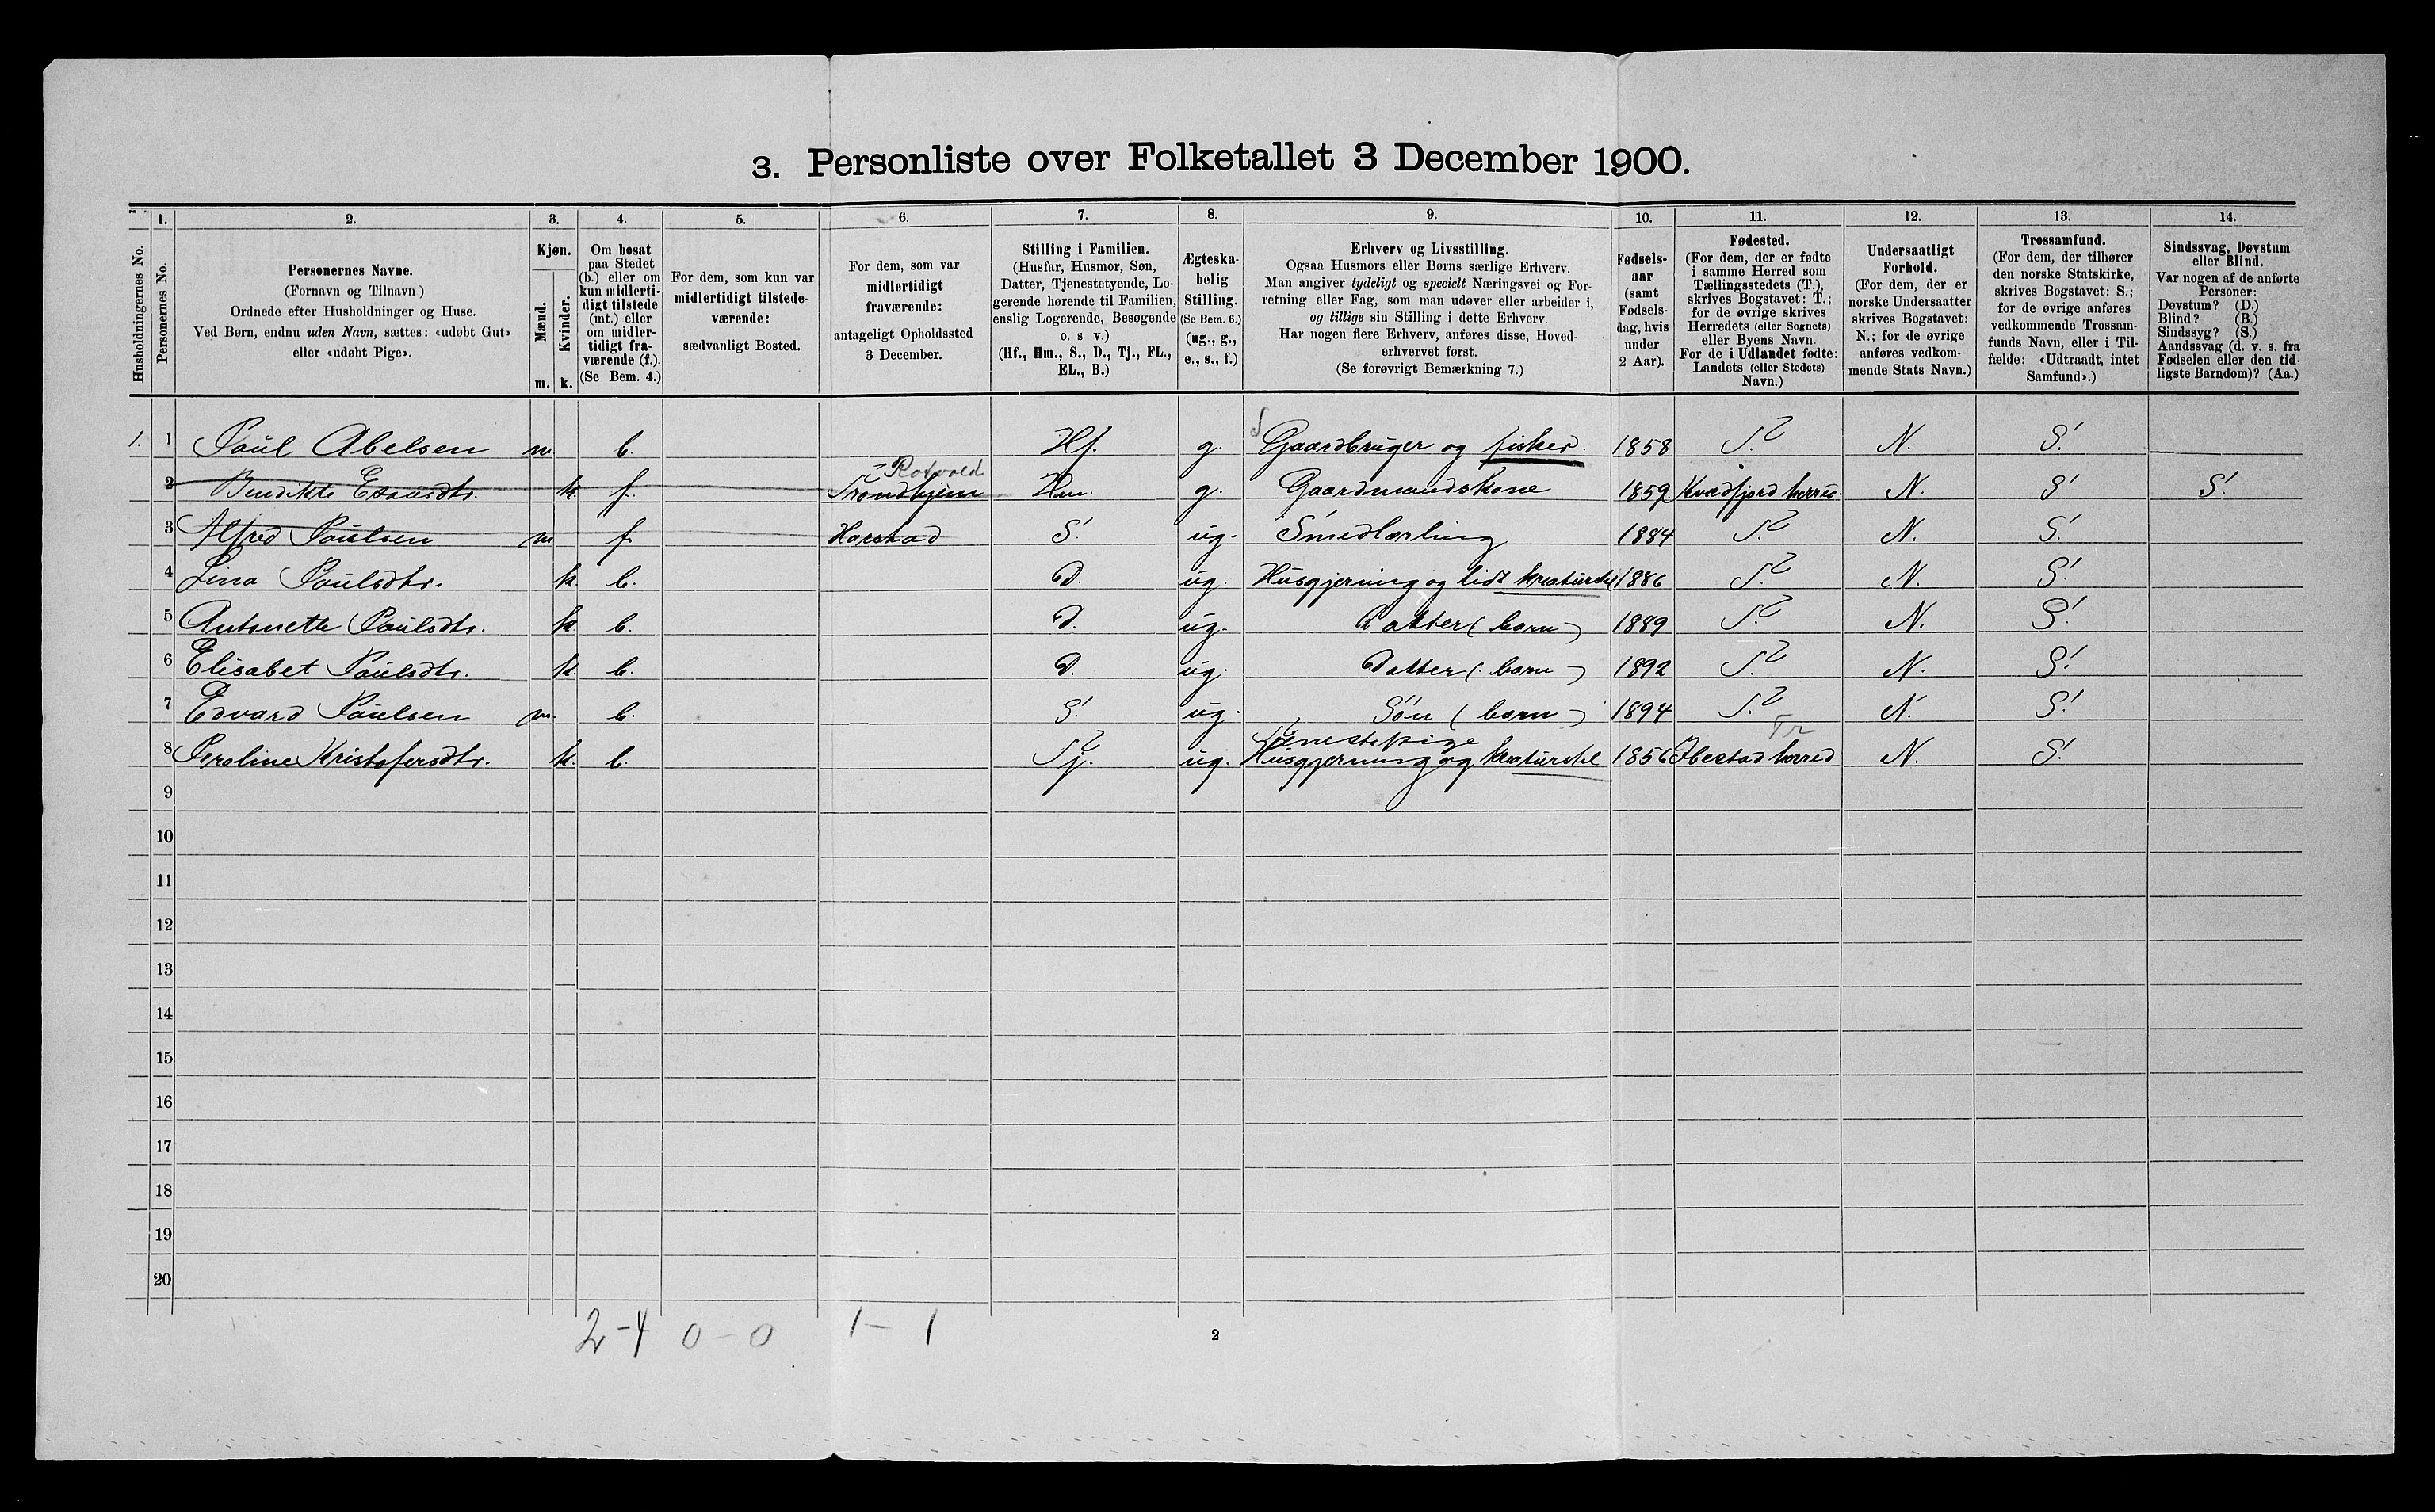 3. Personliste over Folketallet 3 December 1900.
1. 2. 3. 4. 5. 6. 7. 8. 9. 10. 11. 12. 13. 14.
Husholdningernes No.
Personernes No.
Personernes Navne.
(Fornavn og Tilnavn)
Ordnede efter Husholdninger og Huse.
Ved Børn, endnu uden Navn, sættes: «udøbt Gut»
eller «udøbt Pige».
Kjøn.
Mænd.
Kvinder.
m. k.
Om bosat
paa Stedet
(b.) eller om
kun midlerti-
digt tilstede
(mt.) eller
om midler-
tidigt fra-
værende (f.).
(Se Bem. 4.)
For dem, som kun var
midlertidigt tilstede-
værende:
sædvanligt Bosted.
For dem, som var
midlertidigt
fraværende:
antageligt Opholdssted
3 December.
Stilling i Familien.
(Husfar, Husmor, Søn,
Datter, Tjenestetyende, Lo-
gerende hørende til Familien,
enslig Logerende, Besøgende
o. s v.)
(Hf., Hm., S., D., Tj., FL.,
EL., B.)
Ægteska-
belig
Stilling.
(Se Bem. 6.)
(ug., g.,
e., s., f.)
Erhverv og Livsstilling.
Ogsaa Husmors eller Børns særlige Erhverv.
Man angiver tydeligt og specielt Næringsvei og For-
retning eller Fag, som man udøver eller arbeider i,
og tillige sin Stilling i dette Erhverv.
Har nogen flere Erhverv, anføres disse, Hoved-
erhvervet først.
(Se forøvrigt Bemærkning 7.)
Fødsels-
aar
(samt
Fødsels-
dag, hvis
under
2 Aar).
Fødested.
(For dem, der er fødte
i samme Herred som
Tællingsstedets (T.),
skrives Bogstavet: T.;
for de øvrige skrives
Herredets (eller Sognets)
eller Byens Navn.
For de i Udlandet fødte:
Landets (eller Stedets)
Navn.)
Undersaatligt
Forhold.
(For dem, der er
norske Undersaatter
skrives Bogstavet:
N.; for de øvrige
anføres vedkom-
mende Stats Navn.)
Trossamfund.
(For dem, der tilhører
den norske Statskirke,
skrives Bogstavet: S.;
for de øvrige anføres
vedkommende Trossam-
funds Navn, eller i Til-
fælde: «Udtraadt, intet
Samfund».)
Sindssvag, Døvstum
eller Blind.
Var nogen af de anførte
Personer:
Døvstum? (D.)
Blind? (B.)
Sindssyg? (S.)
Aandssvag (d. v. s. fra
Fødselen eller den tid-
ligste Barndom)? (Aa.)
1. 1 Paul Abelsen m. b. Hf. g. Gaardbruger og fisker. 1858 T. N. S.
Rotvold
2 Bendikte Esausdtr. k. f. Trondhjem Hm. g. Gaardmandskone 1859 Kvædfjord herred. N. S. S.
3 Alfred Paulsen m f. Harstad S. ug. Smedlærling 1884 T. N. S.
4 Lina Paulsdtr. k. b. D. ug. Husgjerning og lidt kreaturstel 1886 T. N. S.
5 Antonette Paulsdtr. k. b. D. ug. Datter (barn) 1889 T. N. S.
6 Elisabet Paulsdtr. k. b. D. ug. Datter (barn) 1892 T. N. S.
7 Edvard Paulsen m. b. S. ug. Søn (barn) 1894 T. N. S.
Tjenestepige Tr
8 Peroline Kristofersdtr. k. b. Tj. ug. Husgjerning og kreaturstel 1856 Ibestad herred N. S.
9
10
11
12
13
14
15
16
17
18
19
20
2-4 0-0 1-1
2